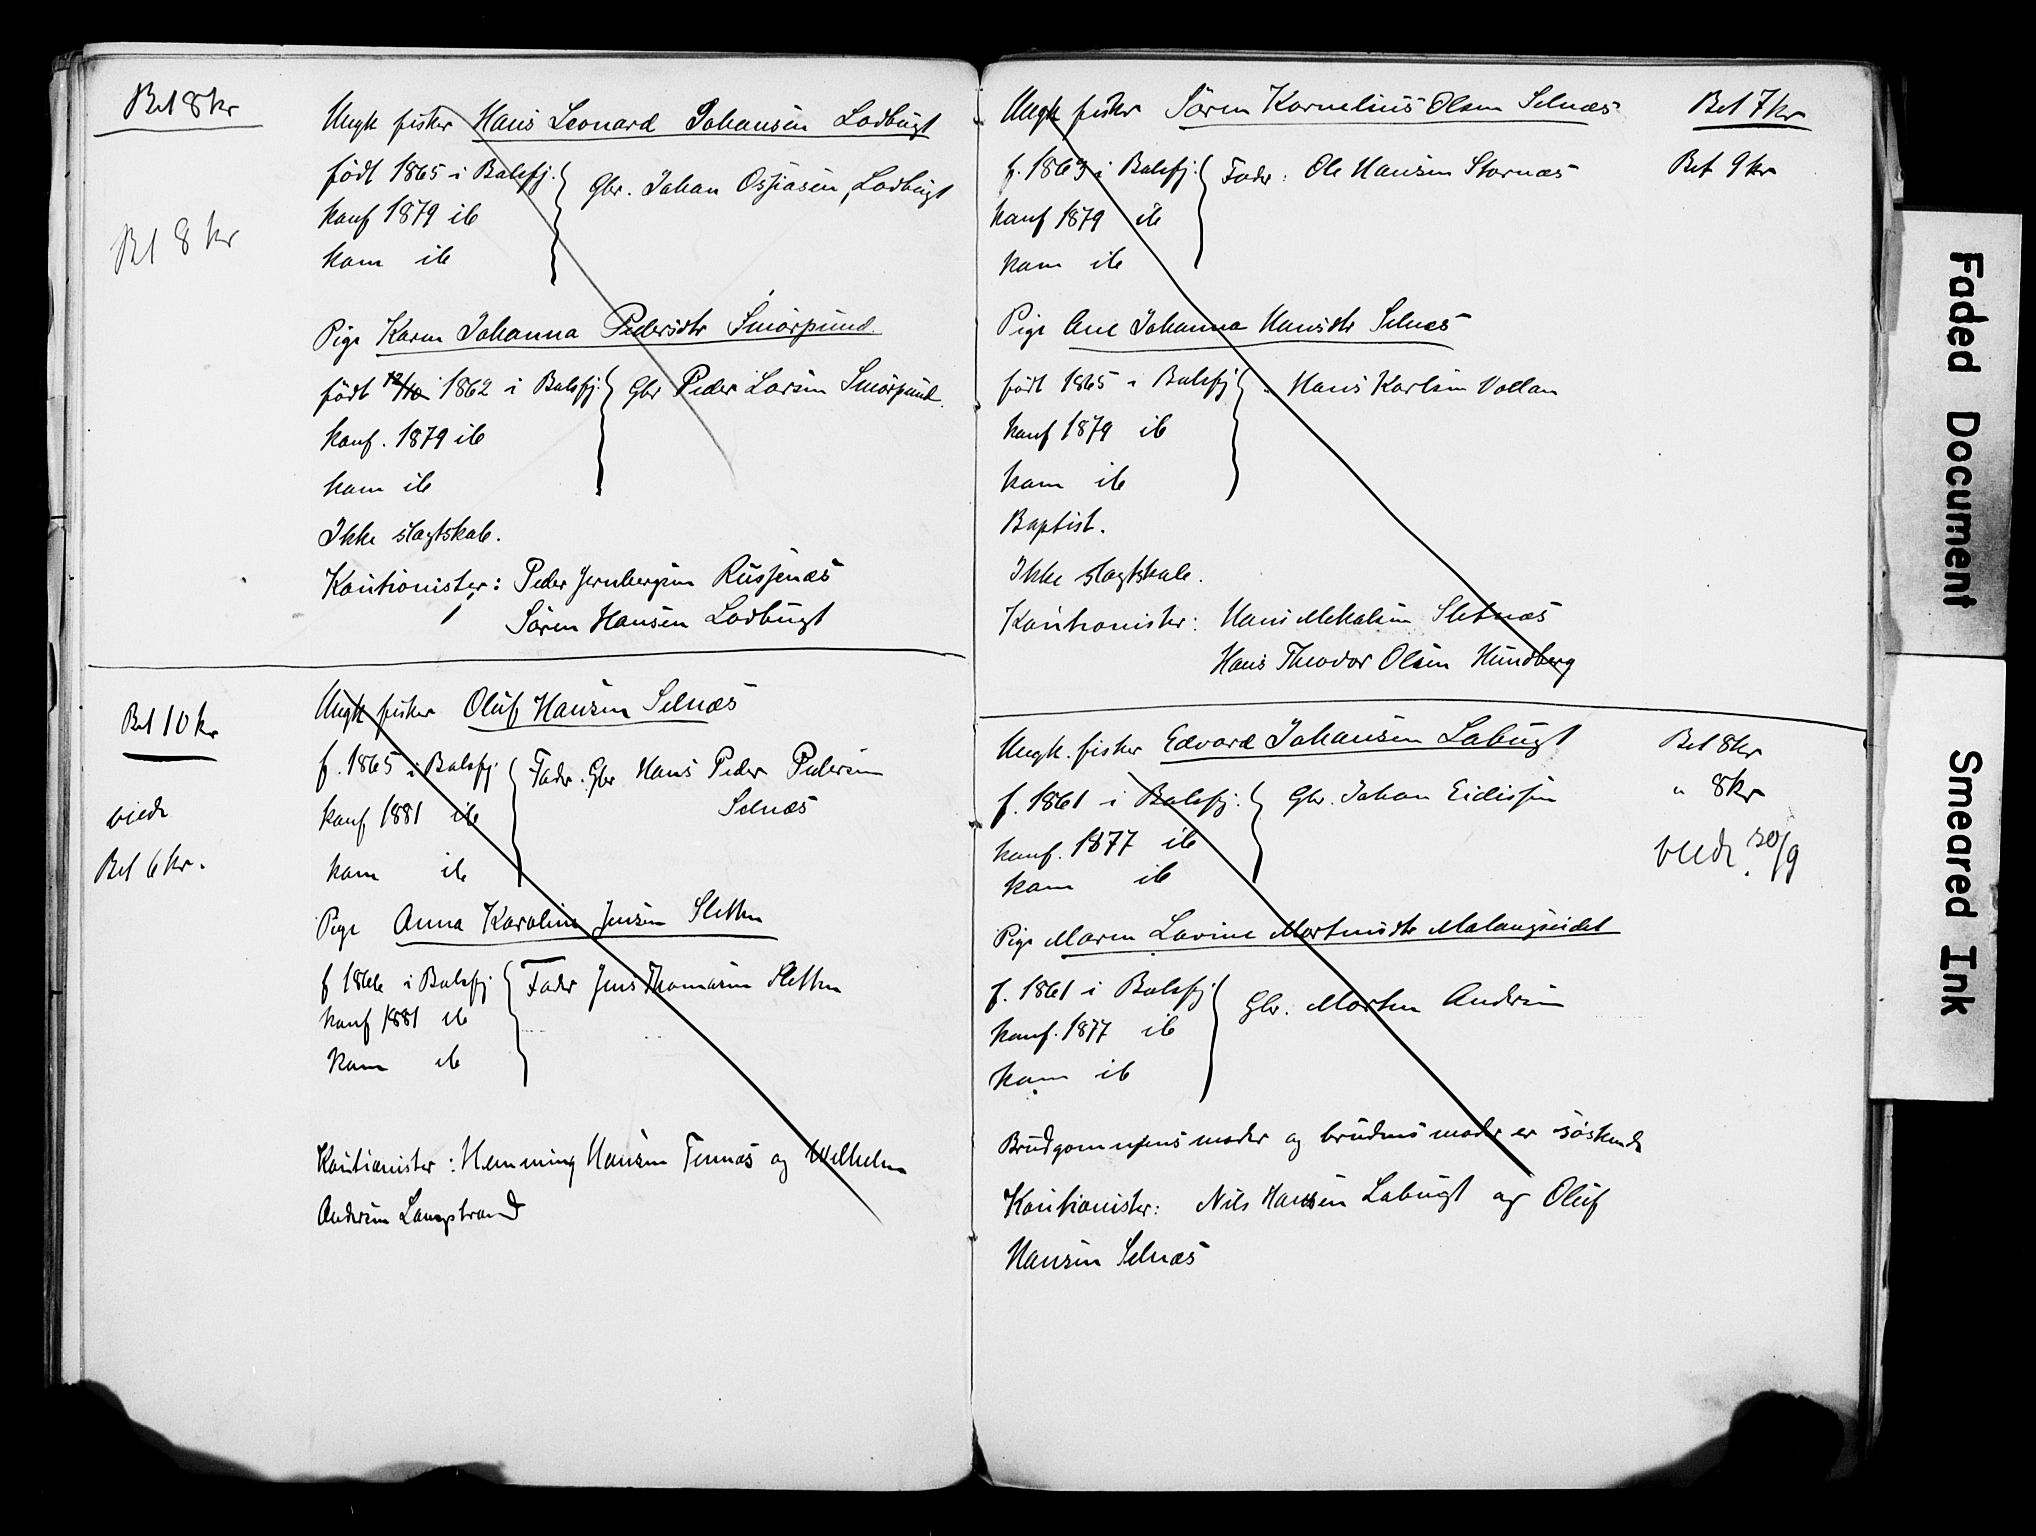 Bet 8 kr
Bet 8 kr
Ungk fisker Hans Leonard Johansen Lodbugt
født 1865 i Balsfj. Gbr. Johan Osjiasen, Lodbugt
konf 1879 ib
kom ib
Pige Karen Johanna Pedersdtr Smørpund
født 12/10 1862 i Balsfj. Gbr Peder Larsen Smørpund.
konf. 1879 ib
kom ib
Ikke slagtskab.
Kautionister: Peder Jernbergsen Russenæs
Sören Hansen Lodbugt
Bet 10 kr
viede
Bet 6 kr.
Ungk fisker Oluf Hansen Selnæs
f. 1865 i Balsfj. Fader: Gbr Hans Peder Pedersen
Selnæs
konf 1881 ib
kom ib
Pige Anna Karoline Jensen Sletten
f 1866 i Balsfj Fader Jens Thomasen Sletten
konf 1881 ib
kom ib
Kautionister: Hemming Hansen Tennæs og Wilhelm
Andersen Langstrand
Ungk fisker Sören Kornelius Olsen Selnæs
f. 1863 i Balsfj. Fader: Ole Hansen Stornæs
konf 1879 ib
kom ib
Bet 7 kr
Bet 9 kr
Pige Ane Johanna Hansdtr Selnæs
født 1865 i Balsfj " Hans Karlsen Vollan
konf 1879 ib
kom ib
Baptist.
Ikke slagtskab.
Kautionister: Hans Mikalsen Sletnæs
Hans Theodor Olsen Hundberg
Ungk. fisker Edvard Johansen Labugt
f. 1861 i Balsfj. Gbr. Johan Eidissen
konf. 1877 ib
kom ib
Bet 8 kr
" 8 kr
viede 30/9
Pige Maren Lovine Mortensdtr Malangseidet
f. 1861 i Balsfj Gbr. Morten Andersen
konf. 1877 ib
kom ib
Brudgommens moder og brudens moder er søskende
Kautionister: Nils Hansen Labugt og Oluf
Hansen Selnæs
Faded Document
Smeared Ink